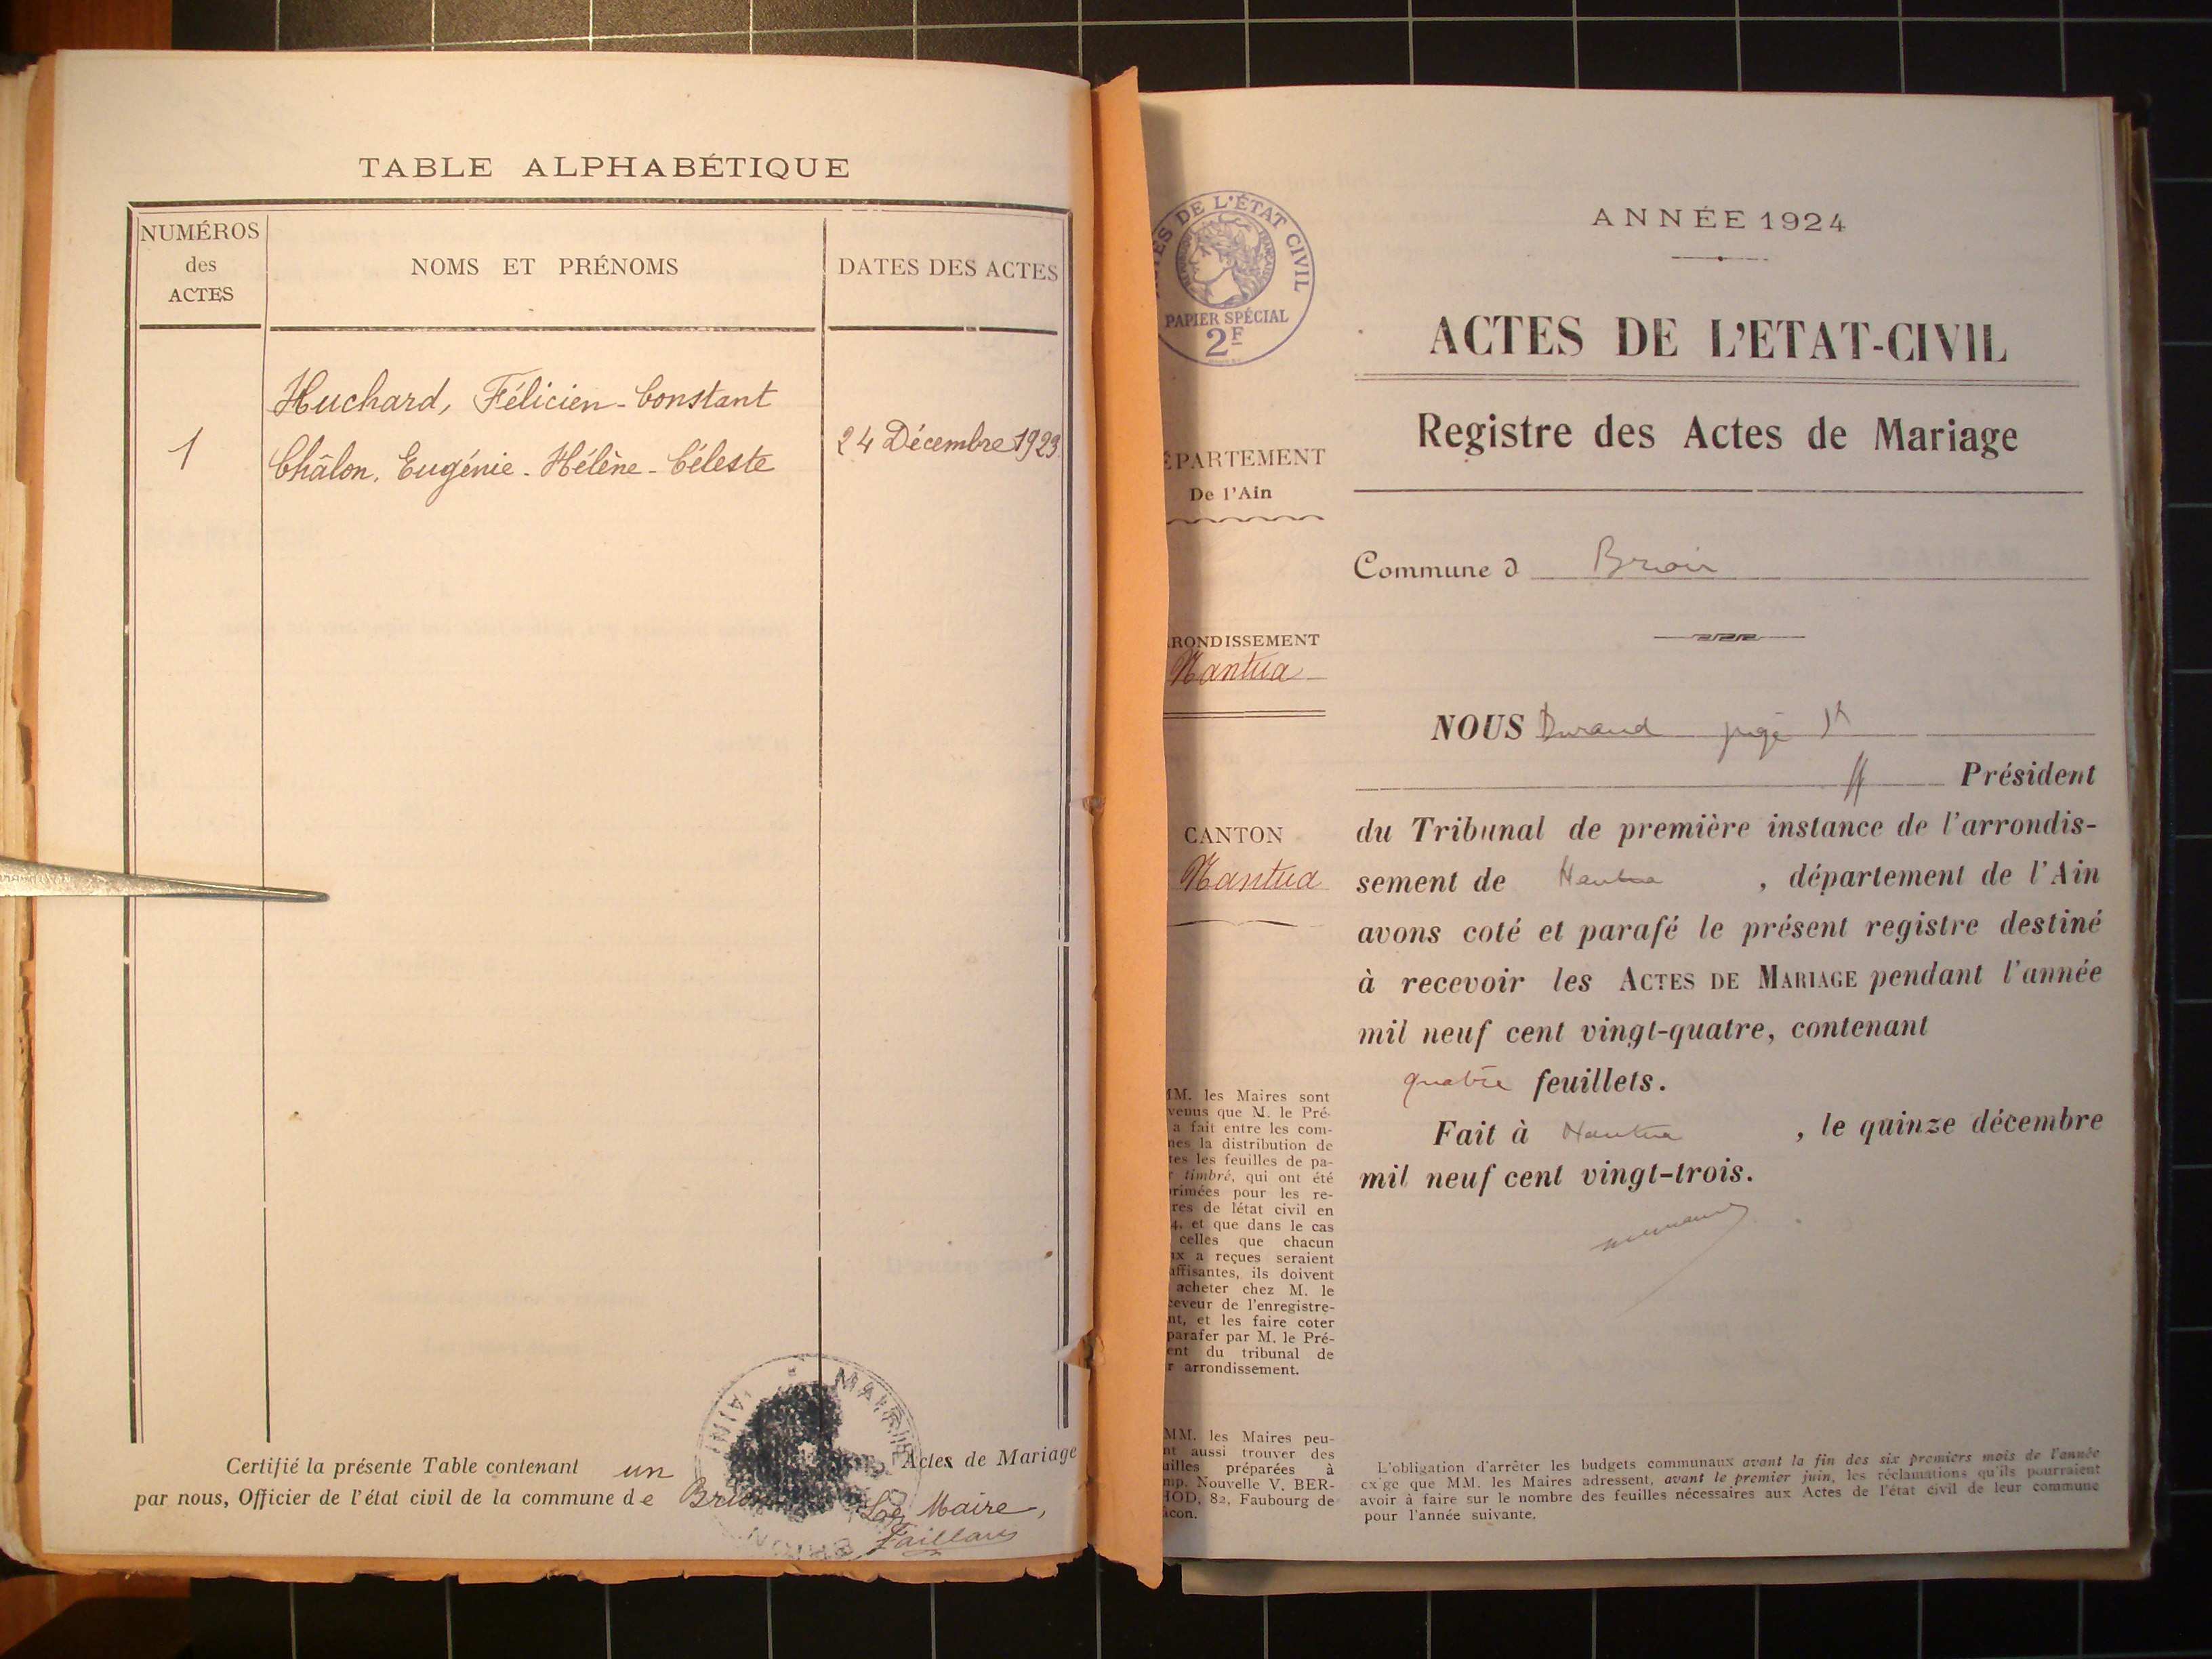 TABLE ALPHABÉTIQUE
NUMÉROS
des
ACTES
NOMS ET PRÉNOMS
DATES DES ACTES
Huchard, Félicien-Constant
1
24 Décembre 1923
Châlon, Eugénie-Hélène-Céleste
Certifié la présente Table contenant un Actes de Mariage
par nous, Officier de l'état civil de la commune de Brion
Le Maire,
MAIRIE
BRION
(AIN)
DE L'ÉTAT CIVIL
PAPIER SPÉCIAL
2F
ÉPARTEMENT
De l'Ain
RONDISSEMENT
Nantua
CANTON
Nantua
MM. les Maires sont
venus que M. le Pré-
a fait entre les com-
nes la distribution de
tes les feuilles de pa-
r timbré, qui ont été
rimées pour les re-
res de létat civil en
4, et que dans le cas
celles que chacun
ux a reçues seraient
uffisantes, ils doivent
acheter chez M. le
ceveur de l'enregistre-
nt, et les faire coter
parafer par M. le Pré-
ent du tribunal de
r arrondissement.
MM. les Maires peu-
nt aussi trouver des
uilles préparées à
mp. Nouvelle V. BER-
HOD, 82, Faubourg de
âcon.
ANNÉE 1924
ACTES DE L'ETAT-CIVIL
Registre des Actes de Mariage
Commune d Brion
NOUS Durand juge
ff Président
du Tribunal de première instance de l'arrondis-
sement de Nantua , département de l'Ain
avons coté et parafé le présent registre destiné
à recevoir les ACTES DE MARIAGE pendant l'année
mil neuf cent vingt-quatre, contenant
quatre feuillets.
Fait à Nantua , le quinze décembre
mil neuf cent vingt-trois.
L'obligation d'arrêter les budgets communaux avant la fin des six premiers mois de l'année
exige que MM. les Maires adressent, avant le premier juin, les réclamations qu'ils pourraient
avoir à faire sur le nombre des feuilles nécessaires aux Actes de l'état civil de leur commune
pour l'année suivante.